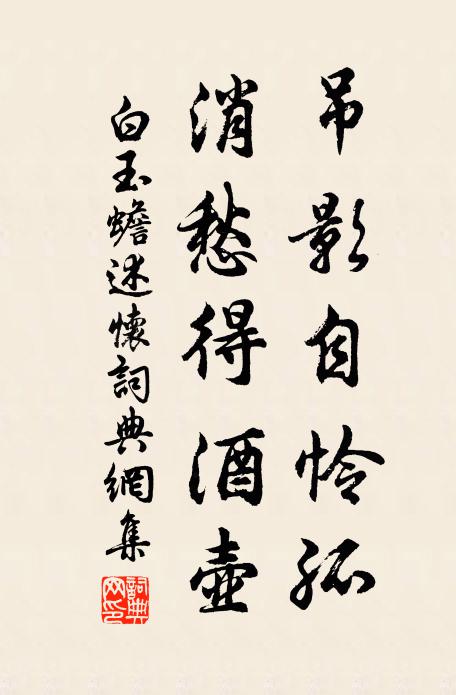 吊影自怜孤
消愁得酒壶
白玉蟾述懷詞典網集
詞典網印